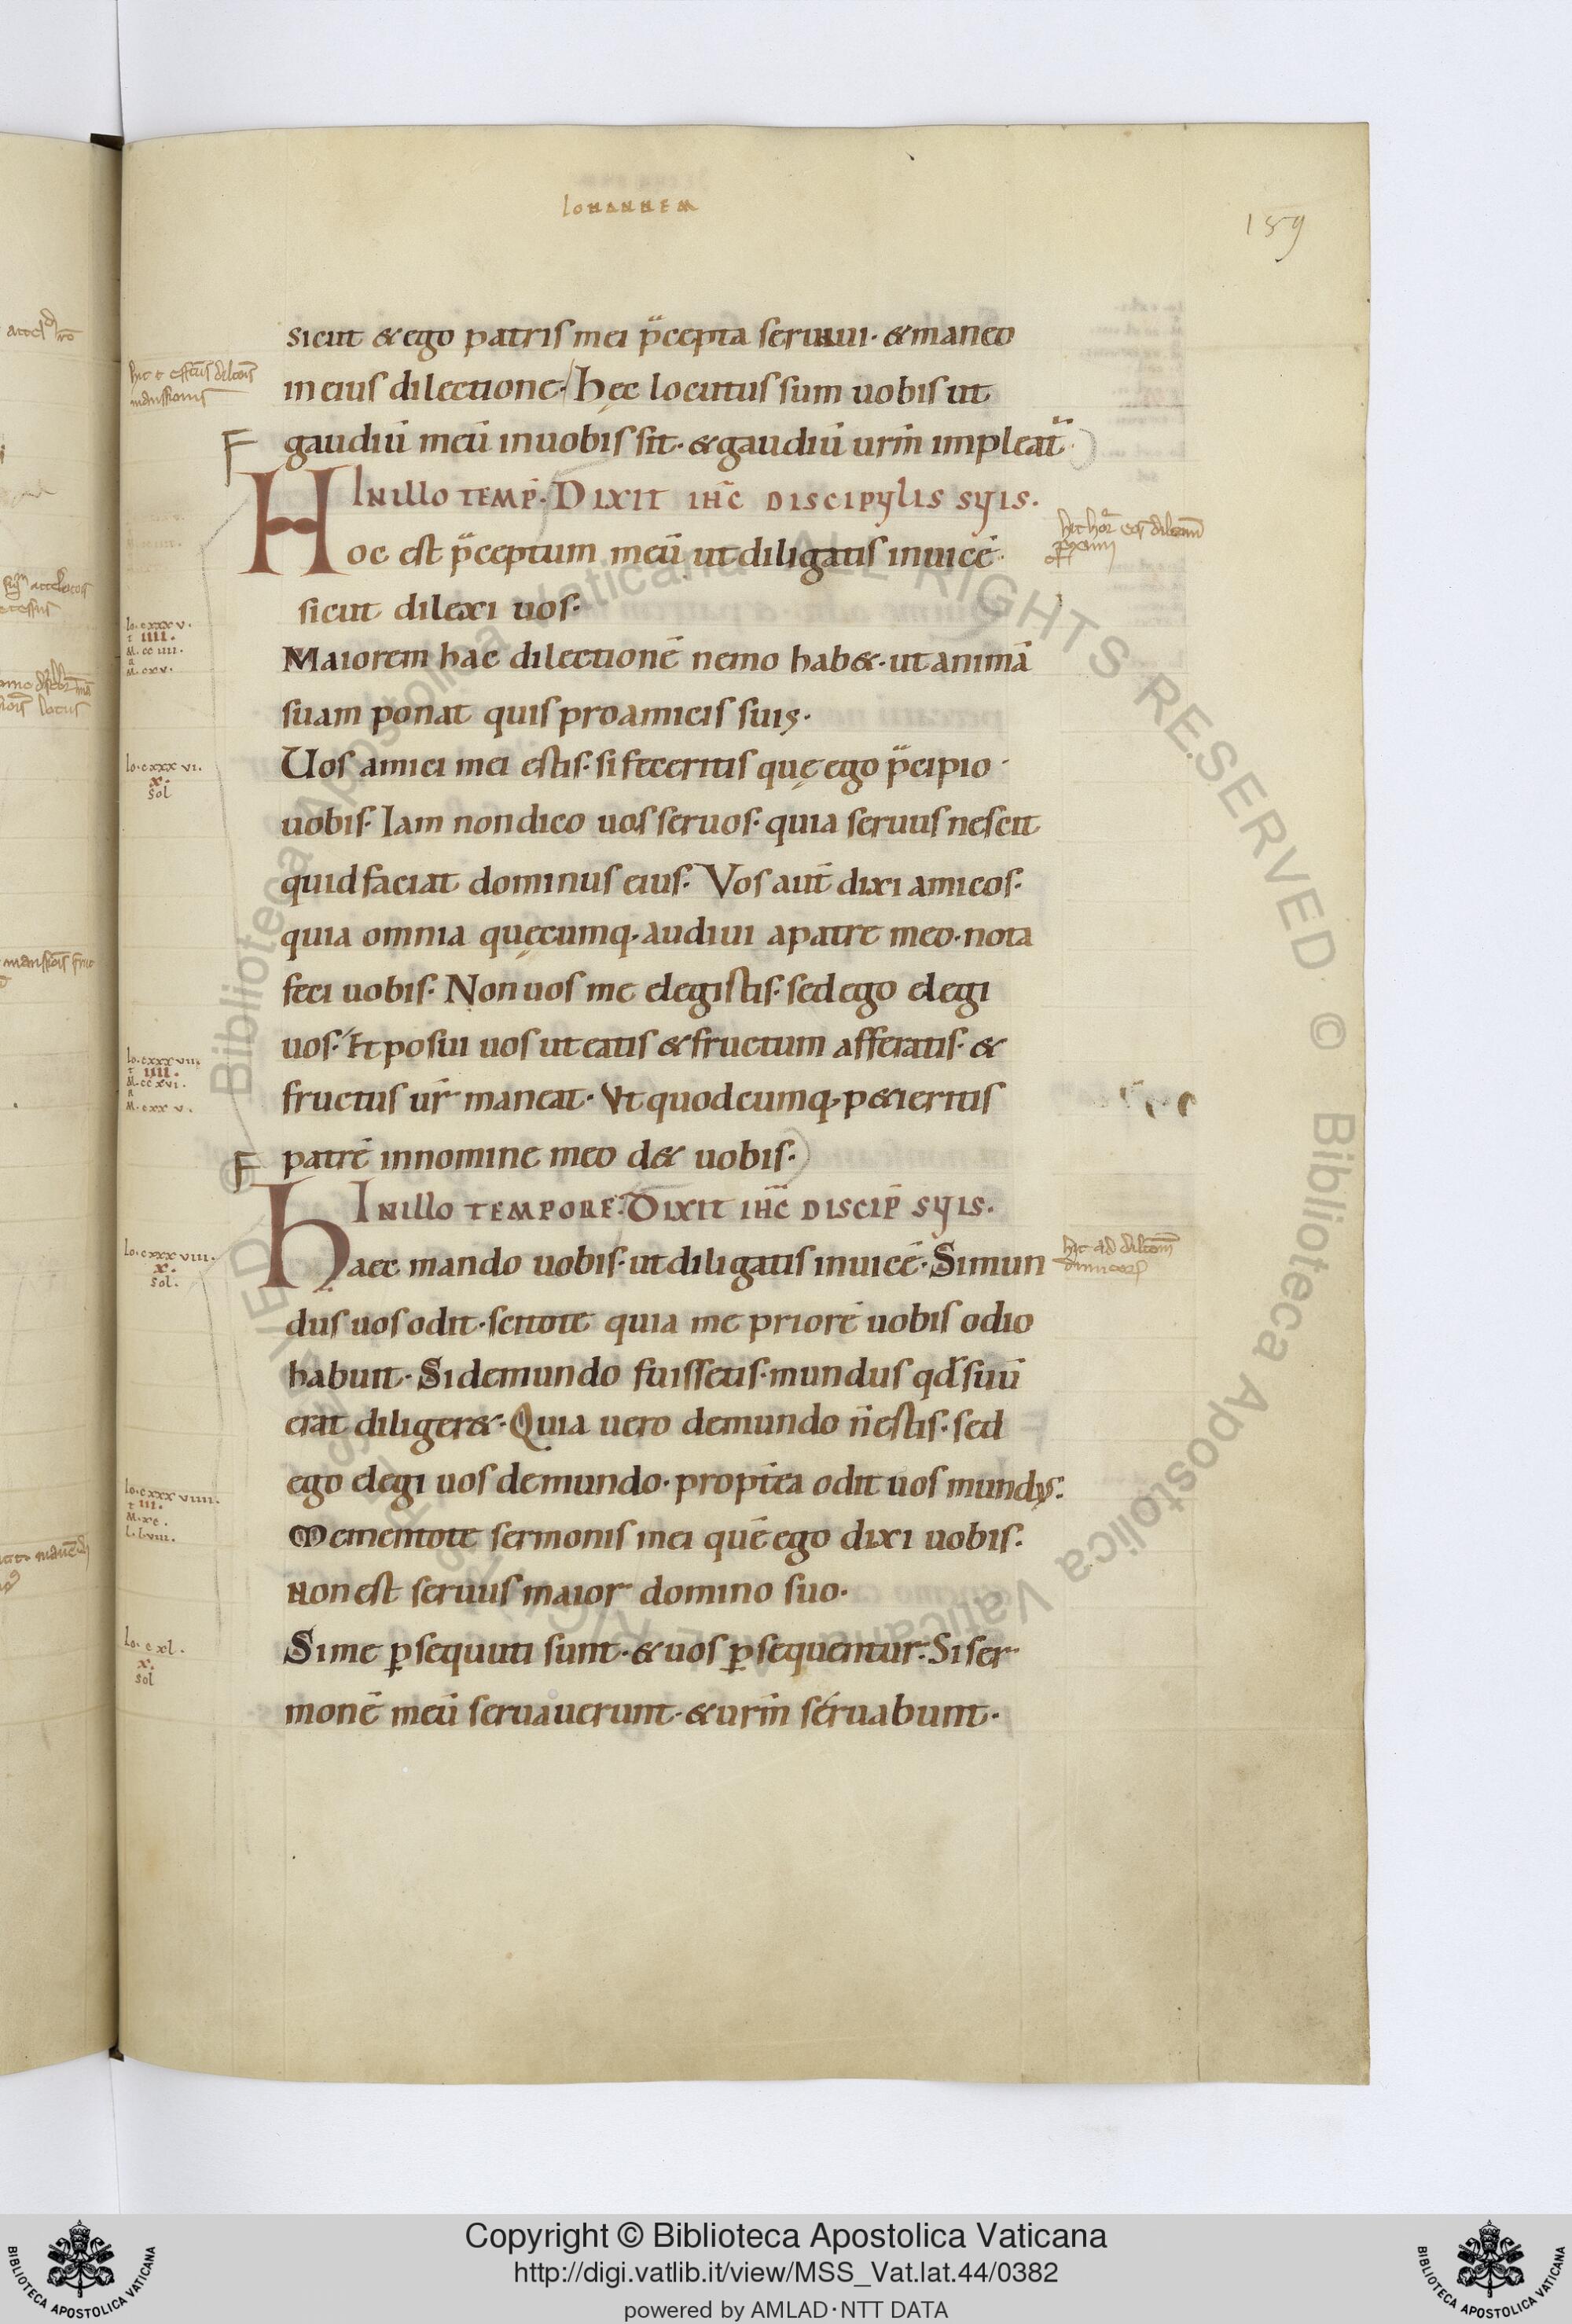 Iohannem
159
sicut & ego patris mei p̃cepta seruaui· & maneo
hic e
in eius dilectione· Hęc locutus sum uobis ut
F gaudiū meū inuobis sit· & gaudiū urm̄ impleat̃·
In illo temp̄· Dixit ih̄c discipulis suis·
Hoc est p̃ceptum meū ut diligatis inuicē·
sicut dilexi uos·
Io·cxxxv·
t IIII·
M·cciiii·
R
M·cxv·
Maiorem hac dilectionē nemo hab&· ut animā
suam ponat quis pro amicis suis·
Io·cxxxvi·
x·
sol
Uos amici mei estis· si feceritis quę ego p̃cipio
uobis· Iam non dico uos seruos· quia seruus nescit
quid faciat dominus eius· Vos aut̄ dixi amicos·
quia omnia quęcumq· audiui a patre meo· nota
feci uobis· Non uos me elegistis· sed ego elegi
uos· Et posui uos ut eatis & fructum afferatis· &
Io·cxxxvii·
t IIII·
M·ccxvi·
R
M·cxxv·
fructus ur̄ maneat· Vt quodcumq· p&ieritis
F patrē in nomine meo d& uobis·
In illo tempore· Dixit ih̄c discip̄ suis·
Io·cxxxviii·
x·
sol·
Haec mando uobis· ut diligatis inuicē· Si mun
dus uos odit· scitote quia me priorē uobis odio
habuit· Si de mundo fuissetis· mundus qd̄ suū
erat diliger&· Quia uero de mundo n̄ estis· sed
ego elegi uos de mundo· propt̄ea odit uos mundus·
Io·cxxxviiii·
t III·
M·xc·
L·lviii·
Mementote sermonis mei quē ego dixi uobis·
non est seruus maior domino suo·
Io·cxl·
x·
sol
Si me p̱sequuti sunt· & uos p̱sequentur· Si ser
monē meū seruauerunt· & urm̄ séruabunt·
Copyright © Biblioteca Apostolica Vaticana
http://digi.vatlib.it/view/MSS_Vat.lat.44/0382
powered by AMLAD·NTT DATA
BIBLIOTECA APOSTOLICA VATICANA
BIBLIOTECA APOSTOLICA VATICANA
© Biblioteca Apostolica Vaticana ALL RIGHTS RESERVED © Biblioteca Apostolica Vaticana ALL RIGHTS RESERVED